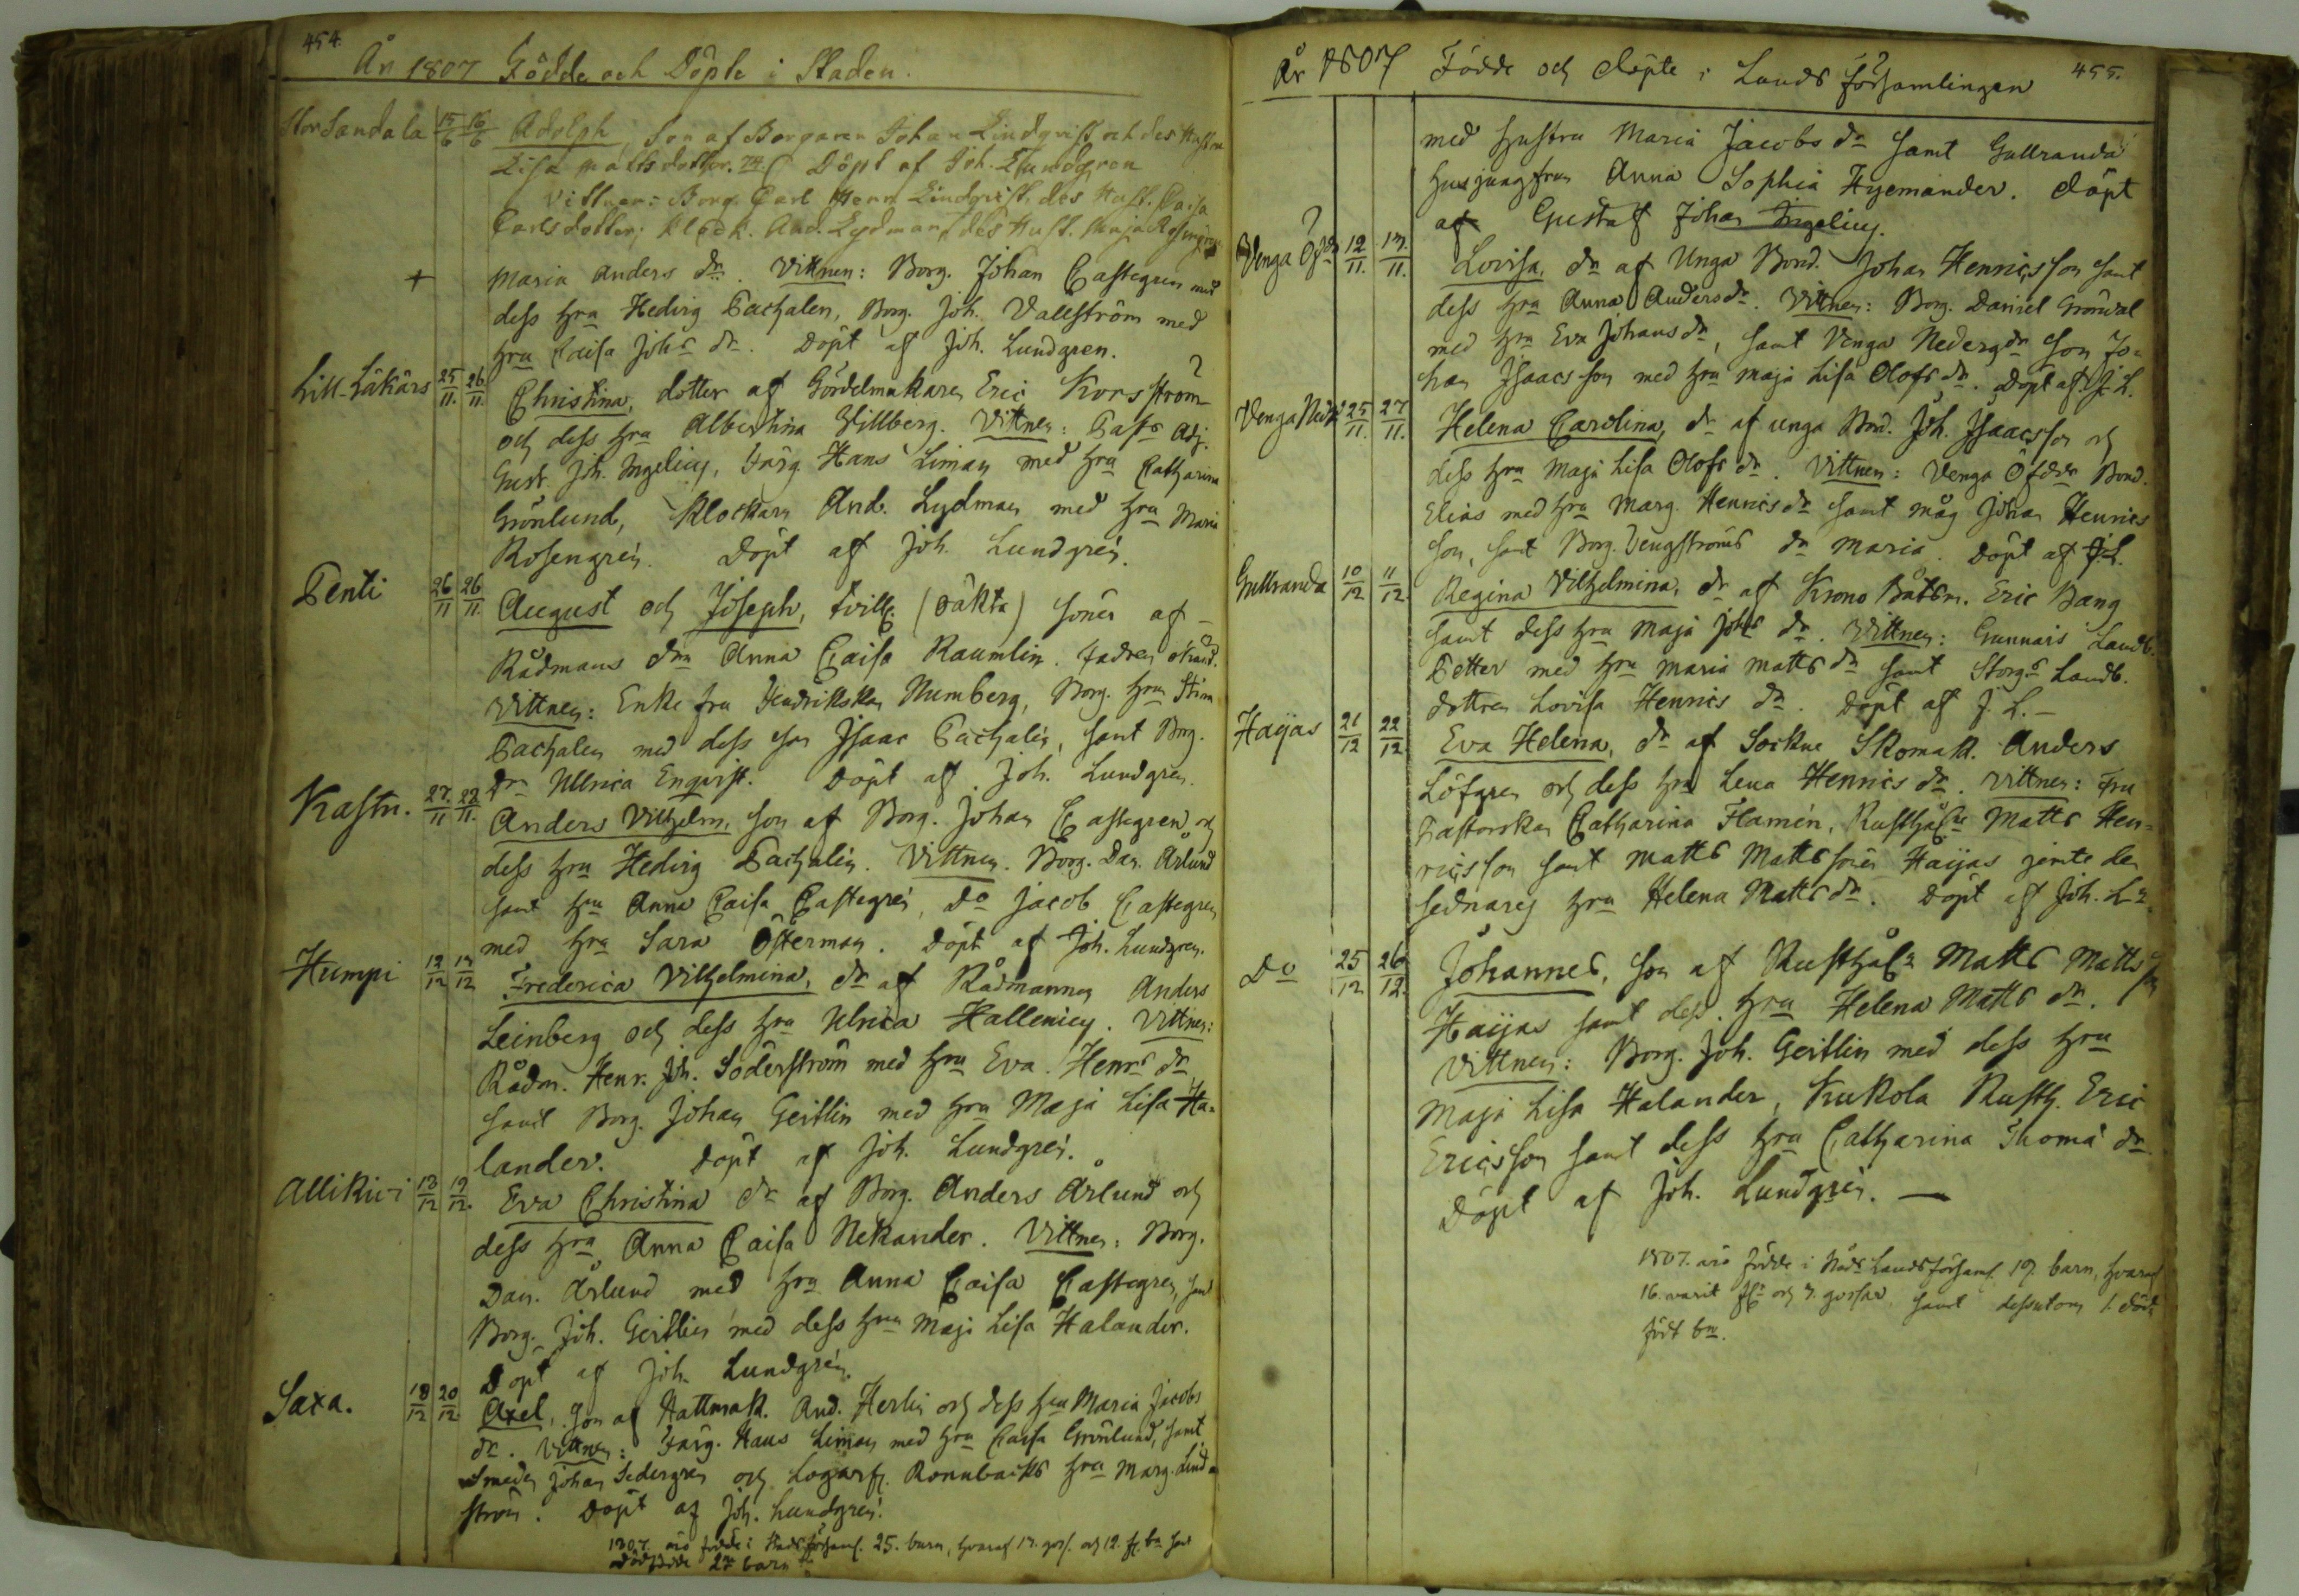 454.
År 1807 Födde och Döpte i Staden.
Stor Sandala 15/6 16/6 Adolph Son af Borgaren Johan Lindqvist och des Hustru
Lisa Mattsdotter. 24 Döpt af Joh. Lundgren
Vittnen: Borg. Carl Henr Lindqvist, des Hust. Caisa
Carlsdotter; Klock. And. Lydman, des Hust. Maja Rosengren
+ Maria Anders dr. Vittnen: Borg. Johan Castegren med
dess hru Hedvig Pachalen, Borg. Joh. Vallström med
hru Caisa Johs dr. Döpt af Joh. Lundgren.
Lill-Läkärs 25/11. 26/11. Christina, dotter af Gördelmakaren Eric Korsström
och dess hru Albertina Hillberg. Vittnen: Past. Adj.
Gust. Joh. Ingelius, Färg. Hans Liman med hru Catharina
Grönlund, Klockarn And. Lydman med hru Maria
Rosengrén. Döpt af Joh. Lundgrén.
Penti 26/11 26/11. August och Joseph, tvill. (oäkta) söner af
Rådmans drn Anna Caisa Raumlin. Fadren okänd.
Vittnen: Enke fru Numberg, Borg. hru Stina
Pachalen med dess son Isaac Pachalin, samt Borg.
dr Ullrica Enqvist. Döpt af Joh. Lundgren.
Kastu. 27/11 28/11. Anders Vilhelm, son af Borg. Johan Castegren och
dess hru Hedvig Pachalin. Vittnen. Borg. Dan. Årlund
samt hru Anna Caisa Castegrén, Do Jacob Castegren
med hru Sara Österman. Döpt af Joh. Lundgren.
Humpi 12/12 13/12 Frederica Vilhelmina, dr af Rådmannen Anders
Leinberg och dess hru Ulrica Hallenius. Vittnen:
Rådm. Henr. Joh. Söderström med hru Eva Henrs dr,
samt Borg. Johan Geitlin med hru Maja Lisa Ha-
lander. Döpt af Joh. Lundgrén.
Allikivi 13/12 19/12. Eva Christina dr af Borg. Anders Årlund och
dess hru Anna Caisa Nekander. Vittnen: Borg.
Dan. Årlund med hru Anna Caisa Castegren, samt
Borg. Joh. Geitlin med dess hru Maja Lisa Halander.
Döpt af Joh. Lundgrén.
Saxa. 18/12 20/12 Axel, Son af Hattmak. And. Herlin och dess hru Maria Jacobs
dr. Vittnen: Färg. Hans Liman med hru Caisa Grönlund, samt
Smeden Johan Sedergren och Rönnbacks hru Marg. Lind-
ström. Döpt af Joh. Lundgrén.
1807. äro födde i Stads församl. 25. barn, hvaraf 13. goss. och 12. fl. bn samt
dödfödde 2ne barn
År 1807 Födde och döpte i Lands församlingen 455.
med hustru Maria Jacobs dr samt Gullranda
husjungfrun Anna Sophia Hyemander. Döpt
af Gustaf Johan Ingelius.
Venga Öfdr 12/11. 13/11. Lovisa, dr af Unga Bond. Johan Henricsson samt
dess hru Anna Anders dr. Vittnen: Borg. Daniel Grönvall
med hru Eva Johans dr, samt Venga Nedergdn Son Jo-
han Isaacsson med hru Maja Lisa Olofs dr. Döpt af J. L.
Venga Nedr 25/11. 27/11. Helena Carolina, dr af unga Bnd. Joh. Isaacsson och
dess hru Maja Lisa Olofs dr. Vittnen: Venga Öfdrn Bond.
Elias med hru Marg. Henrics dr samt måg Johan Henrics
son, samt Borg. Vengströms dr Maria. Döpt af J.L.
Gullranda 10/12 11/12. Regina Vilhelmina, dr af Krono Båtsm. Eric Bang
samt dess hru Maja Johs dr. Vittnen: Gunnais Landb.
Petter med hru Maria Matts dr samt Storgs Landb.
dottren Lovisa Henrics dr. Döpt af J. L.
Haijas 21/12 22/12. Eva Helena, dr af Sockne Skomak. Anders
Löfgren och dess hru Lena Henrics dr. Vittnen: Fru
Pastorskan Catharina Flamén, Rusthålln Matts Hen-
ricsson samt Matts Mattssson Haijas jemte den
sednares hru Helena Matts dr. Döpt af Joh. Ln.
Do 25/12 26/12. Johannes, son af Rusthåln Matts Matts son
Haijas samt dess hru Helena Matts dr.
Vittnen: Borg. Joh. Geitlin med dess hru
Maja Lisa Halander, Kukola Rusth. Eric
Ericsson samt dess hru Catharina Thomæ dr
Döpt af Joh. Lundgrén. —
1807. äro födde i Nåds Landsförsaml. 19. barn, hvaraf
16. varit fl. och 3. gossar samt dessutom 1. död-
födt bn.